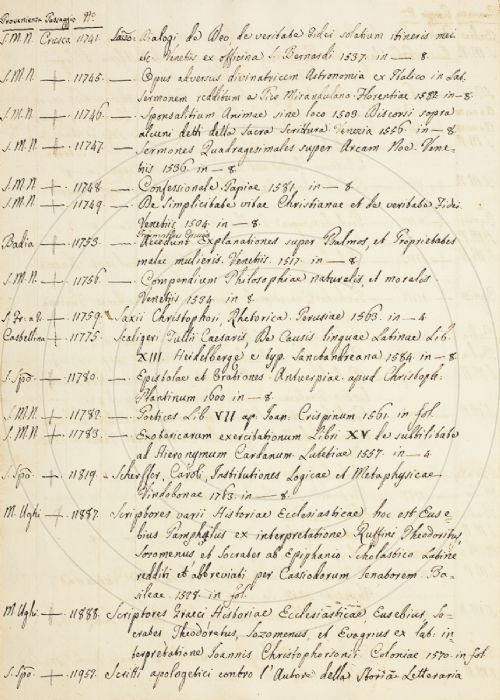 Provenienza Passaggio N.o
S.M.N. Crusca 11741. Dialogi de Deo, de veritate Fidei solatium itineris mei
etc. Venetiis ex officina S. Bernardi 1537. in — 8.
S.M.N — + — 11745. — Opus adversus divinatricem Astronomia ex Italico in Lat.
Sermonem redditum a Pico Mirandulano Florentiae 1582 in — 8.
S.M.N — + — 11746. — Sponsalitium Animae sine loco 1503. Discorsi sopra
alcuni detti della Sacra Scrittura Venezia 1556. in — 8.
S.M.N — + — 11747. — Sermones Quadragesimales super Arcam Noe. Vene-
tiis 1536 in — 8.
S.M.N — + — 11748. — Confessionale Papiae 1581. in — 8.
S.M.N — + — 11749. — De simplicitate vitae Christianae et de veritate Fidei.
Venetiis 1504. in — 8.
Badia — + — 11753. — Accedunt Explanationes super Psalmos, et Proprietates
malae mulieris. Venetiis. 1517. in — 8.
S.M.N. — + — 11756. — Compendium Philosophiae naturalis, et moralis
Venetiis 1534. in 8.
— + — 11759. Saxii Christophori, Rhetorica. Perusiae 1563. in — 4
Castellina — + — 11775. Scaligeri Iulii Caesaris, De Causis linguae Latinae Lib.
XIII. Heidelbergae e typ. Sanctandreana 1584. in — 8
S. Spo. — + — 11780. — Epistolae et Orationes. Antuerpiae. apud Christoph.
Plantinum 1600 in — 8.
S.M.N. — + — 11782. — Poetices Lib. VII ap. Ioan. Crispinum 1561. in fol.
S.M.N. — + — 11783. — Exotericarum exercitationum Libri XV de subtilitate
ad Hieronymum Cardanum. Lutetiae 1557. in — 4
S. Spo. — + — 11819. Scherffer, Caroli, Institutiones Logicae et Metaphysicae
Vindobonae 1763. in — 8.
M. Ughi — + — 11887. Scriptores varii Historiae Ecclesiasticae hoc est Euse-
bius Pamphilus ex interpretatione Ruffini Theodoritus,
Sozomenus et Socrates ab Epiphanio Scholastico Latine
redditi et abbreviati per Cassiodorum Senatorem. Ba-
sileae. 1528. in fol.
M. Ughi. — + — 11888. Scriptores Graeci Historiae Ecclesiasticae, Eusebius, So-
crates Theodoretus, Sozomenus, et Evagrius ex lat. in
terpretatione Ioannis Christophorsonii. Coloniae 1570. in fol.
S. Spo. — + — 11952. Scritti apologetici contro l'Autore della Storia Letteraria